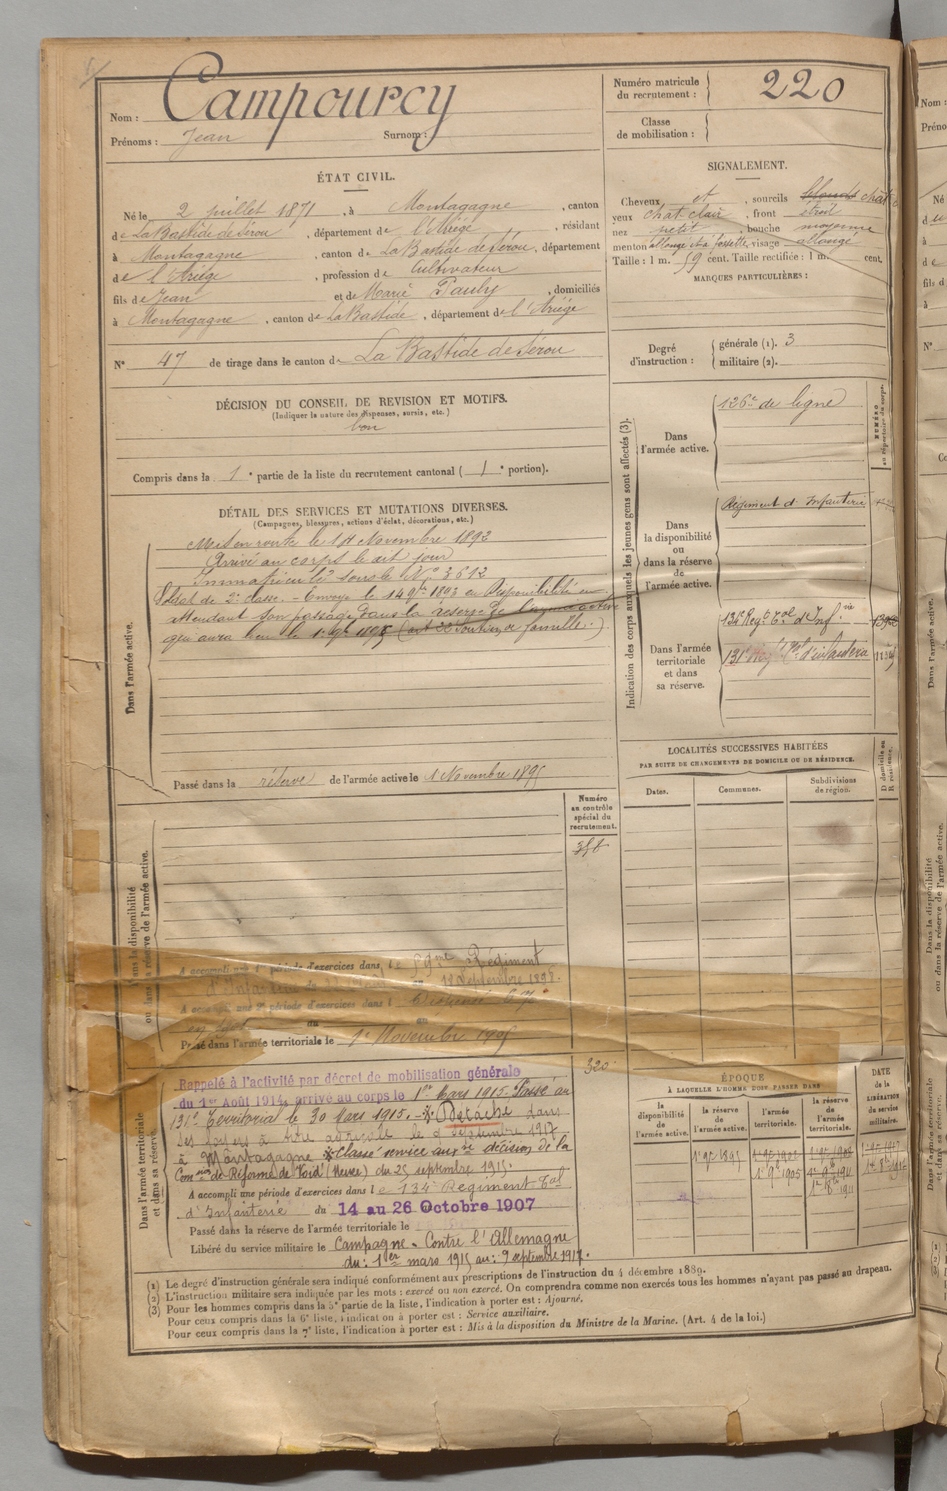 Nom : Campourcy
Prénoms : Jean Surnom :
Numéro matricule
du recrutement : 220
Classe
de mobilisation :
ÉTAT CIVIL.
Né le 2 juillet 1871, à Montagagne, canton
de La Bastide de Sérou, département de l'Ariège, résidant
à Montagagne, canton de La Bastide de Sérou, département
de l'Ariège, profession de Cultivateur
fils de Jean et de Marie Pauly, domiciliés
à Montagagne, canton de La Bastide, département de l'Ariège
N° 47 de tirage dans le canton de La Bastide de Sérou
SIGNALEMENT.
Cheveux et, sourcils blonds chat
yeux chat clair, front étroit
nez petit, bouche moyenne
menton allongé et à fossette, visage allongé
Taille : 1 m. 59 cent. Taille rectifiée : 1 m. cent.
MARQUES PARTICULIÈRES :
Degré
d'instruction :
générale (1). 3
militaire (2).
DÉCISION DU CONSEIL DE REVISION ET MOTIFS.
(Indiquer la nature des dispenses, sursis, etc.)
bon
Compris dans la 1e partie de la liste du recrutement cantonal (1e portion).
DÉTAIL DES SERVICES ET MUTATIONS DIVERSES.
(Campagnes, blessures, actions d'éclat, décorations, etc.)
Dans l'armée active.
Mis en route le Novembre 1892
Arrivé au corps le dit jour
Immatriculé sous le N° 3612
Soldat de 2e classe. Envoyé le 1893 en Disponibilité en
attendant son passage dans la réserve de l'armée active
qui aura lieu le 1895 (art 22 Soutien de famille.)
Passé dans la réserve de l'armée active le 1 Novembre 1895
Indication des corps auxquels les jeunes gens sont affectés (3).
Dans
l'armée active.
126e de ligne
NUMÉRO
au répertoire du corps.
Dans
la disponibilité
ou
dans la réserve
de
l'armée active.
Régiment d'Infanterie
Dans l'armée
territoriale
et dans
sa réserve.
134e Regt Tal d'Infie
131e Regt Tal d'infanterie
LOCALITÉS SUCCESSIVES HABITÉES
PAR SUITE DE CHANGEMENTS DE DOMICILE OU DE RÉSIDENCE.
Dates.
Communes.
Subdivisions
de région.
D domicile ou
R résidence.
Numéro
au contrôle
spécial du
recrutement.
Dans la disponibilité
ou dans la réserve de l'armée active.
A accompli une 1e période d'exercices dans le Régiment
d'Infanterie du au 18 Septembre 1898.
A accompli une 2e période d'exercices dans l
du au
Passé dans l'armée territoriale le 1er Novembre 1905
320
Dans l'armée territoriale
et dans sa réserve.
Rappelé à l'activité par décret de mobilisation générale
du 1er Août 1914, arrivé au corps le 1er Mars 1915. Passé au
131e Territorial le 30 Mars 1915. * Détaché dans
ses foyers à titre agricole le 9 septembre 1917
à Montagagne * Classé service aux re décision de la
Com on de Réforme de Void (Meuse) du 25 septembre 1915.
A accompli une période d'exercices dans le 134e Régiment Tal
d'Infanterie du 14 au 26 Octobre 1907
Passé dans la réserve de l'armée territoriale le
Libéré du service militaire le Campagne - Contre l'Allemagne
du : 1er mars 1915 au : 9 septembre 1917.
ÉPOQUE
À LAQUELLE L'HOMME DOIT PASSER DANS
la
disponibilité
de
l'armée active.
la réserve
de
l'armée active.
l'armée
territoriale.
la réserve
de
l'armée
territoriale.
DATE
de la
LIBÉRATION
du service
militaire.
(1) Le degré d'instruction générale sera indiqué conformément aux prescriptions de l'instruction du 4 décembre 1889.
(2) L'instruction militaire sera indiquée par les mots : exercé ou non exercé. On comprendra comme non exercés tous les hommes n'ayant pas passé au drapeau.
(3) Pour les hommes compris dans la 5e partie de la liste, l'indication à porter est : Ajourné.
Pour ceux compris dans la 6e liste, l'indication à porter est : Service auxiliaire.
Pour ceux compris dans la 7e liste, l'indication à porter est : Mis à la disposition du Ministre de la Marine. (Art. 4 de la loi.)